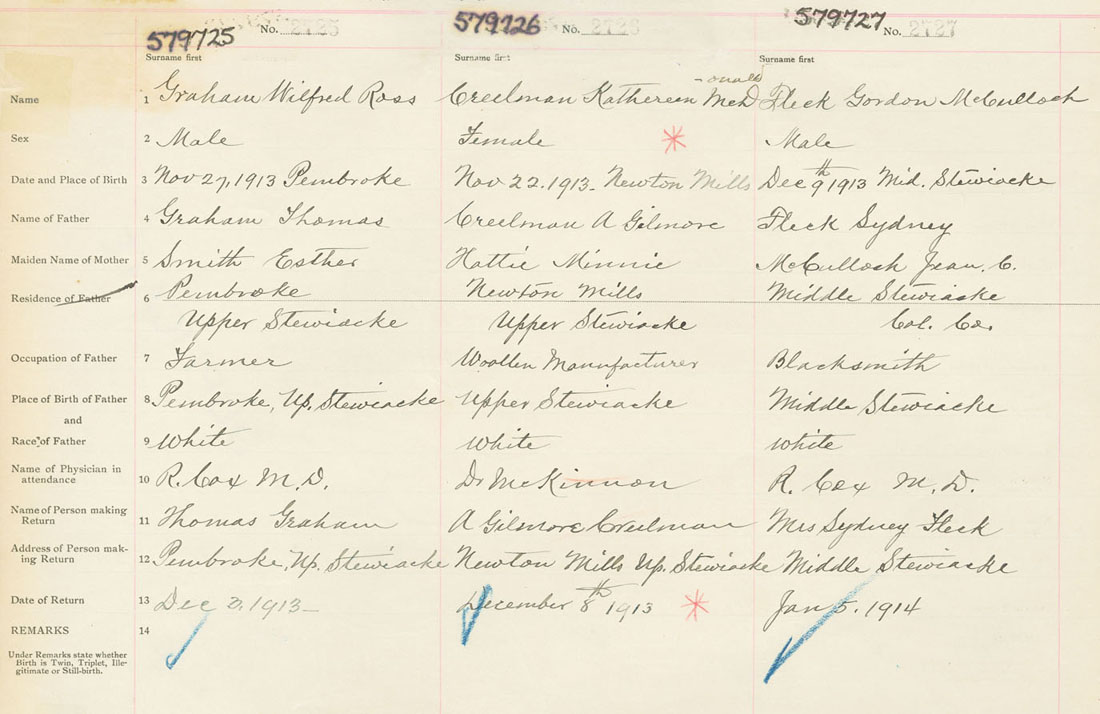 579725 No. 2725 579726 No. 2726 579727 No. 2727
Surname first Surname first Surname first
-onald
Name 1 Graham Wilfred Ross Creelman Kathereen McD Fleck Gordon McCulloch
Sex 2 Male Female Male
Date and Place of Birth 3 Nov 27, 1913 Pembroke Nov 22. 1913. Newton Mills Dec 9th 1913 Mid. Stewiacke
Name of Father 4 Graham Thomas Creelman A Gilmore Fleck Sydney
Maiden Name of Mother 5 Smith Esther Hattie Minnie McCulloch Jean. C.
Residence of Father 6 Pembroke Newton Mills Middle Stewiacke
Upper Stewiacke Upper Stewiacke Col. Co.
Occupation of Father 7 Farmer Woollen Manufacturer Blacksmith
Place of Birth of Father 8 Pembroke, Up. Stewiacke Upper Stewiacke Middle Stewiacke
and
Race of Father 9 White White White
Name of Physician in
attendance 10 R. Cox M.D. Dr McKinnon R. Cox M.D.
Name of Person making
Return 11 Thomas Graham A Gilmore Creelman Mrs Sydney Fleck
Address of Person mak-
ing Return 12 Pembroke, Up. Stewiacke Newton Mills Up. Stewiacke Middle Stewiacke
Date of Return 13 Dec 1913 December 8th 1913 Jan 5. 1914
REMARKS 14
Under Remarks state whether
Birth is Twin, Triplet, Ille-
gitimate or Still-birth.